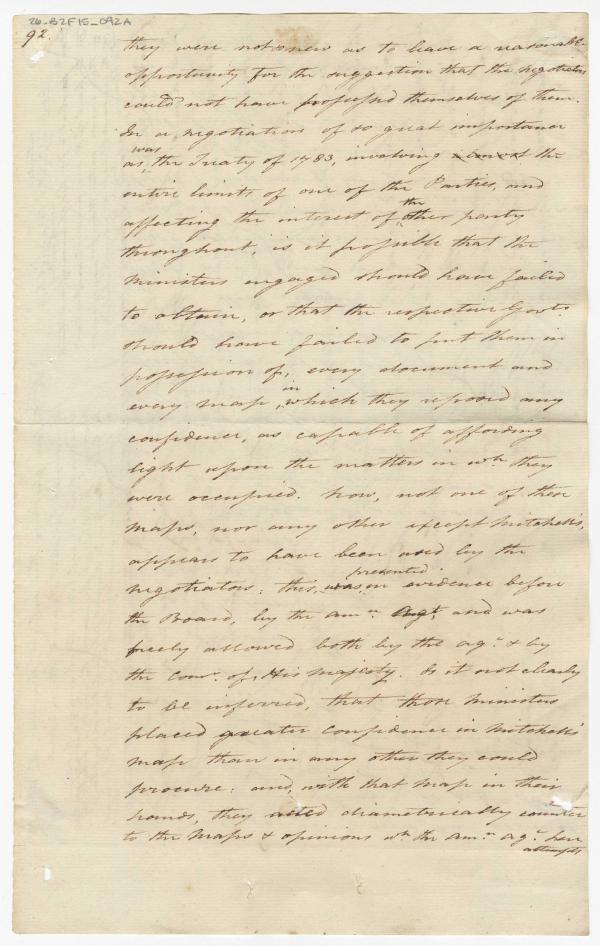 26-B2F15-092A
92.
they were not so new as to leave a reasonable
opportunity for the suggestion that the negotiators
could not have possessed themselves of them.
In a negotiation of so great importance
as was the Treaty of 1783, involving the
entire limits of one of the Parties, and
affecting the interest of the other party
throughout, is it possible that the
Ministers engaged should have failed
to obtain, or that the respective Govts
should have failed to put them in
possession of, every document and
every map, in which they reposed any
confidence, as capable of affording
light upon the matters in wh. they
were occupied. Now, not one of these
maps, nor any other except Mitchell's,
appears to have been used by the
negotiators: this, was presented in evidence before
the Board, by the amn. agt. and was
freely allowed both by the agt. & by
the Comr. of, His Majesty. Is it not clearly
to be inferred, that those Ministers
placed greater confidence in Mitchell's
map than in any other they could
procure: and, with that map in their
hands, they acted diametrically counter
to the Maps & opinions wh. the amn. agt. here
attempts